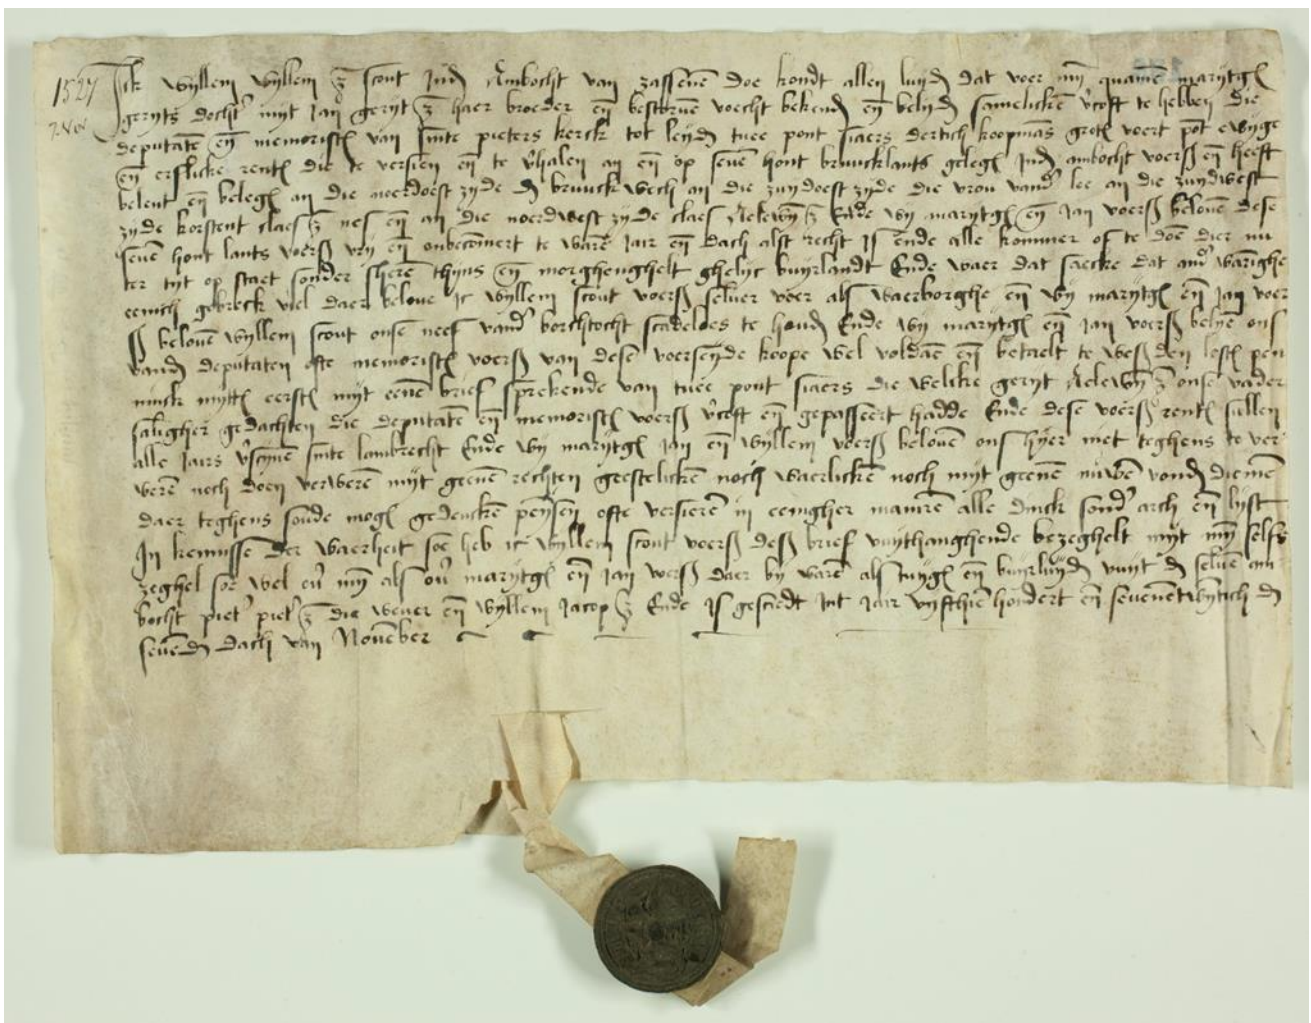 1527
7 Nov
Ick Wyllem Wyllem z scout Ind Ambocht van zassenē doe kondt allen luyd dat voer my quamē marytg
geryts docht' myt Jan geryt z haer broeder eñ bestoruē voecht bekend eñ belyd samelickē v'coft te hebben die
deputatē eñ memorist van sinte pieters kerck tot leyd tuee pont siaers dertich koopmās grot voert pōt ewyge
eñ erflicke rent die te versien eñ te v'halen an eñ op seuē hont bruucklants geleg Ind ambocht voerß eñ heeft
belent eñ beleg an die noerdoest zyde d bruuck wech an die zuydoest zyde die vrou vand' lee an die zuydwest
zyde korstent claes z nes eñ an die noerdwest zyde claes Aelewy z Ende wy marytg eñ Jan voerß belouē dese
seuē hont lants voerß vry eñ onbecōmert te warē Jair eñ dach alst recht Is ende alle kommer of te doē dier nu
ter tyt op staet sonder sherē thyns eñ morghenghelt ghelyc buyrlandt Ende waer dat saecke dat and' warighe
eenich gebreck viel daer beloue ic Wyllem scout voerß seluer voer als Waerborghe eñ wy marytg eñ Jan voer
ß belouē Wyllem scout onse neef vand' borchtocht scadeloes te houd Ende wy marytg eñ Jan voerß belyē ons
vand deputaten ofte memorist voerß van desē voerseyde koope wel voldaē eñ betaelt te weß dē lest pen
ninck mytt eerst myt eenē brief sprekende van tuee pont siaers die welcke geryt Aelewy z onse vader
saligher gedachten die deputatē eñ memorist voerß v'coft eñ gepasseert hadde Ende dese voerß rent sullen
alle Jairs v'scynē sinte lambrecht Ende wy marytg Jan eñ Wyllem voerß belouē ons hyer niet teghens te ver
werē noch doen verwerē myt geenē rechten geestelickē noch waerlickē noch myt geenē nuwē vond diemē
daer teghens soude mog gedenckē peysen ofte versierē in eenigher manirē alle dinck sond' arch eñ lyst
In kennisse der waerheit soe heb ic Wyllem scout voerß desß brief vuythanghende bezeghelt myt my selfs
zeghel soe wel ou' my als ou' marytg eñ Jan voerß daer by warē als tuyg eñ buyrluyd vuyt d seluē am
bocht piet' piet' z die weuer eñ Wyllem Jacop z Ende Is gesciedt Int Jair vyfthien hondert eñ seuenētwytich d
seuēd dach van Nouēber